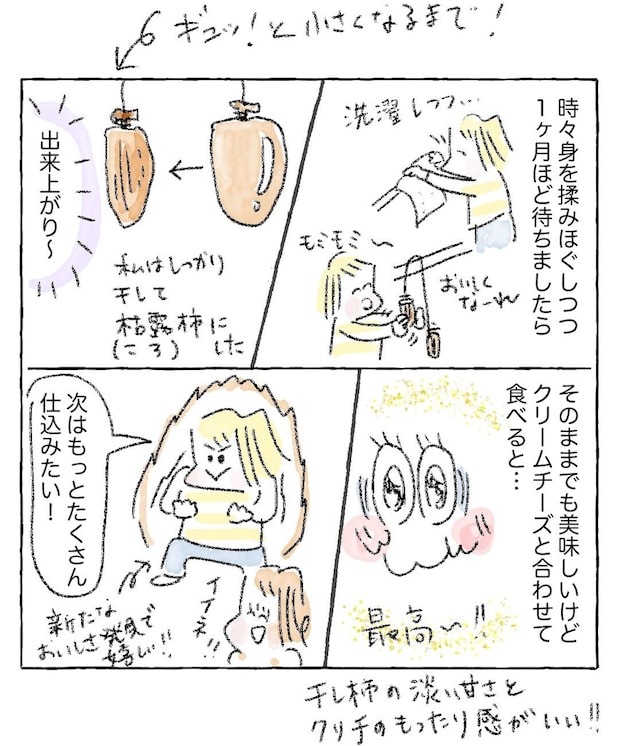 ギュッ！と小さくなるまで！
時々身を揉みほぐしつつ
1ヶ月ほど待ちましたら
洗濯しつつ…
モミモミ〜
おいしく
なーれ
出来上がり〜
私はしっかり
干して
枯露柿に
(ころ) した
そのままでも美味しいけど
クリームチーズと合わせて
食べると…
最高〜!!
次はもっとたくさん
仕込みたい！
新たな
おいしさ発見で
嬉しい!!
イイネ!!
干し柿の淡い甘さと
クリチのもったり感がいい!!